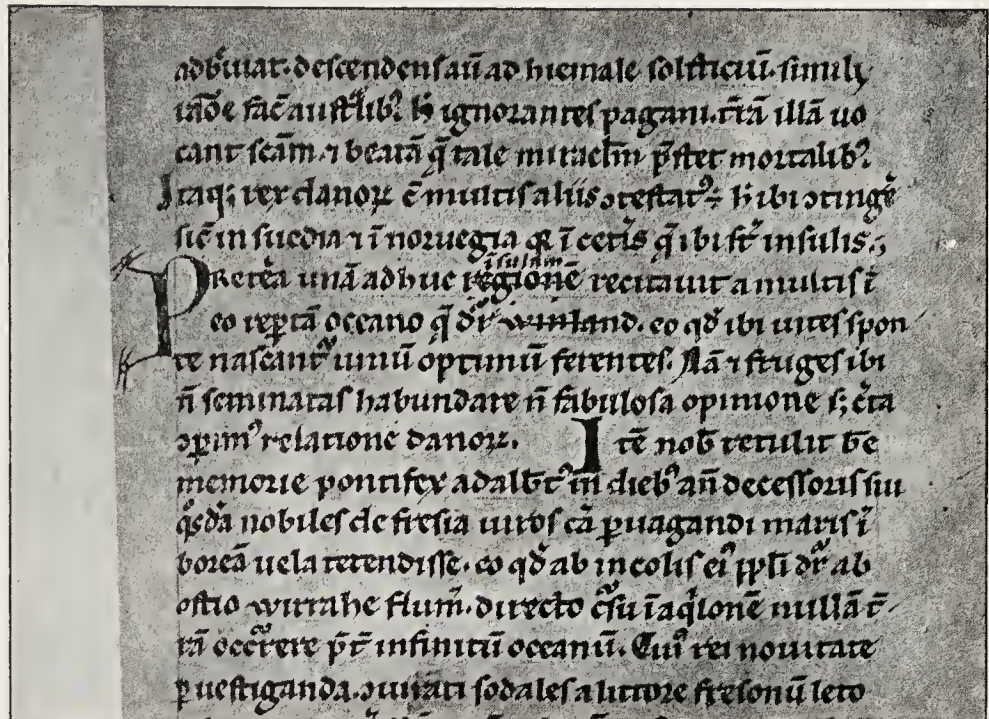 adbreuiat. descendens aūt ad hiemale solsticiū. simili
rac̄oe fac̄ austͣlibꝫ. H̄ ignorantes pagani. tr̄ā illā uo
cant sc̄am. ⁊ beatā q̄ tale miracl̄m p̄stet mortalibꝫ.
Itaqꝫ rex danoꝝ c̄ multis aliis ɔtestatꝰ ÷ h̄ ibi ɔtingͤe
sic̄ in suedia ⁊ ī noruegia ī cetͥs q̄ ibi st̄ insulis.
PRetͤea unā adhuc regionē recitauit a multis ī
īsulam
eo reꝑtā occeano q̄ dr̄ winland. eo qđ ibi uites spon
te nascant᷑ uinū optimū ferentes. Nā ⁊ fruges ibi
n̄ seminatas habundare n̄ fabulosa opinione sꝫ c̄ta
ɔꝑimꝰ relatione danoꝝ. Itē nob̄ retulit b̄e
memorie pontifex adalb̄tꝰ in diebꝫ an̄decessoris sui
qͦsdā nobiles de fresia uiros cā ꝑuagandi maris ī
boreā uela tetendisse. eo qđ ab incolis eiꝰ ppl̄i dr̄ ab
ostio wirrahe flum̄. directo cͬsu ī aqͥlonē nullā t̄r
rā occͬrere p̄t̄ infinitū oceanū. Cuiꝰ rei nouitate
ꝑuestiganda. ɔiurati sodales a littore fresonū leto